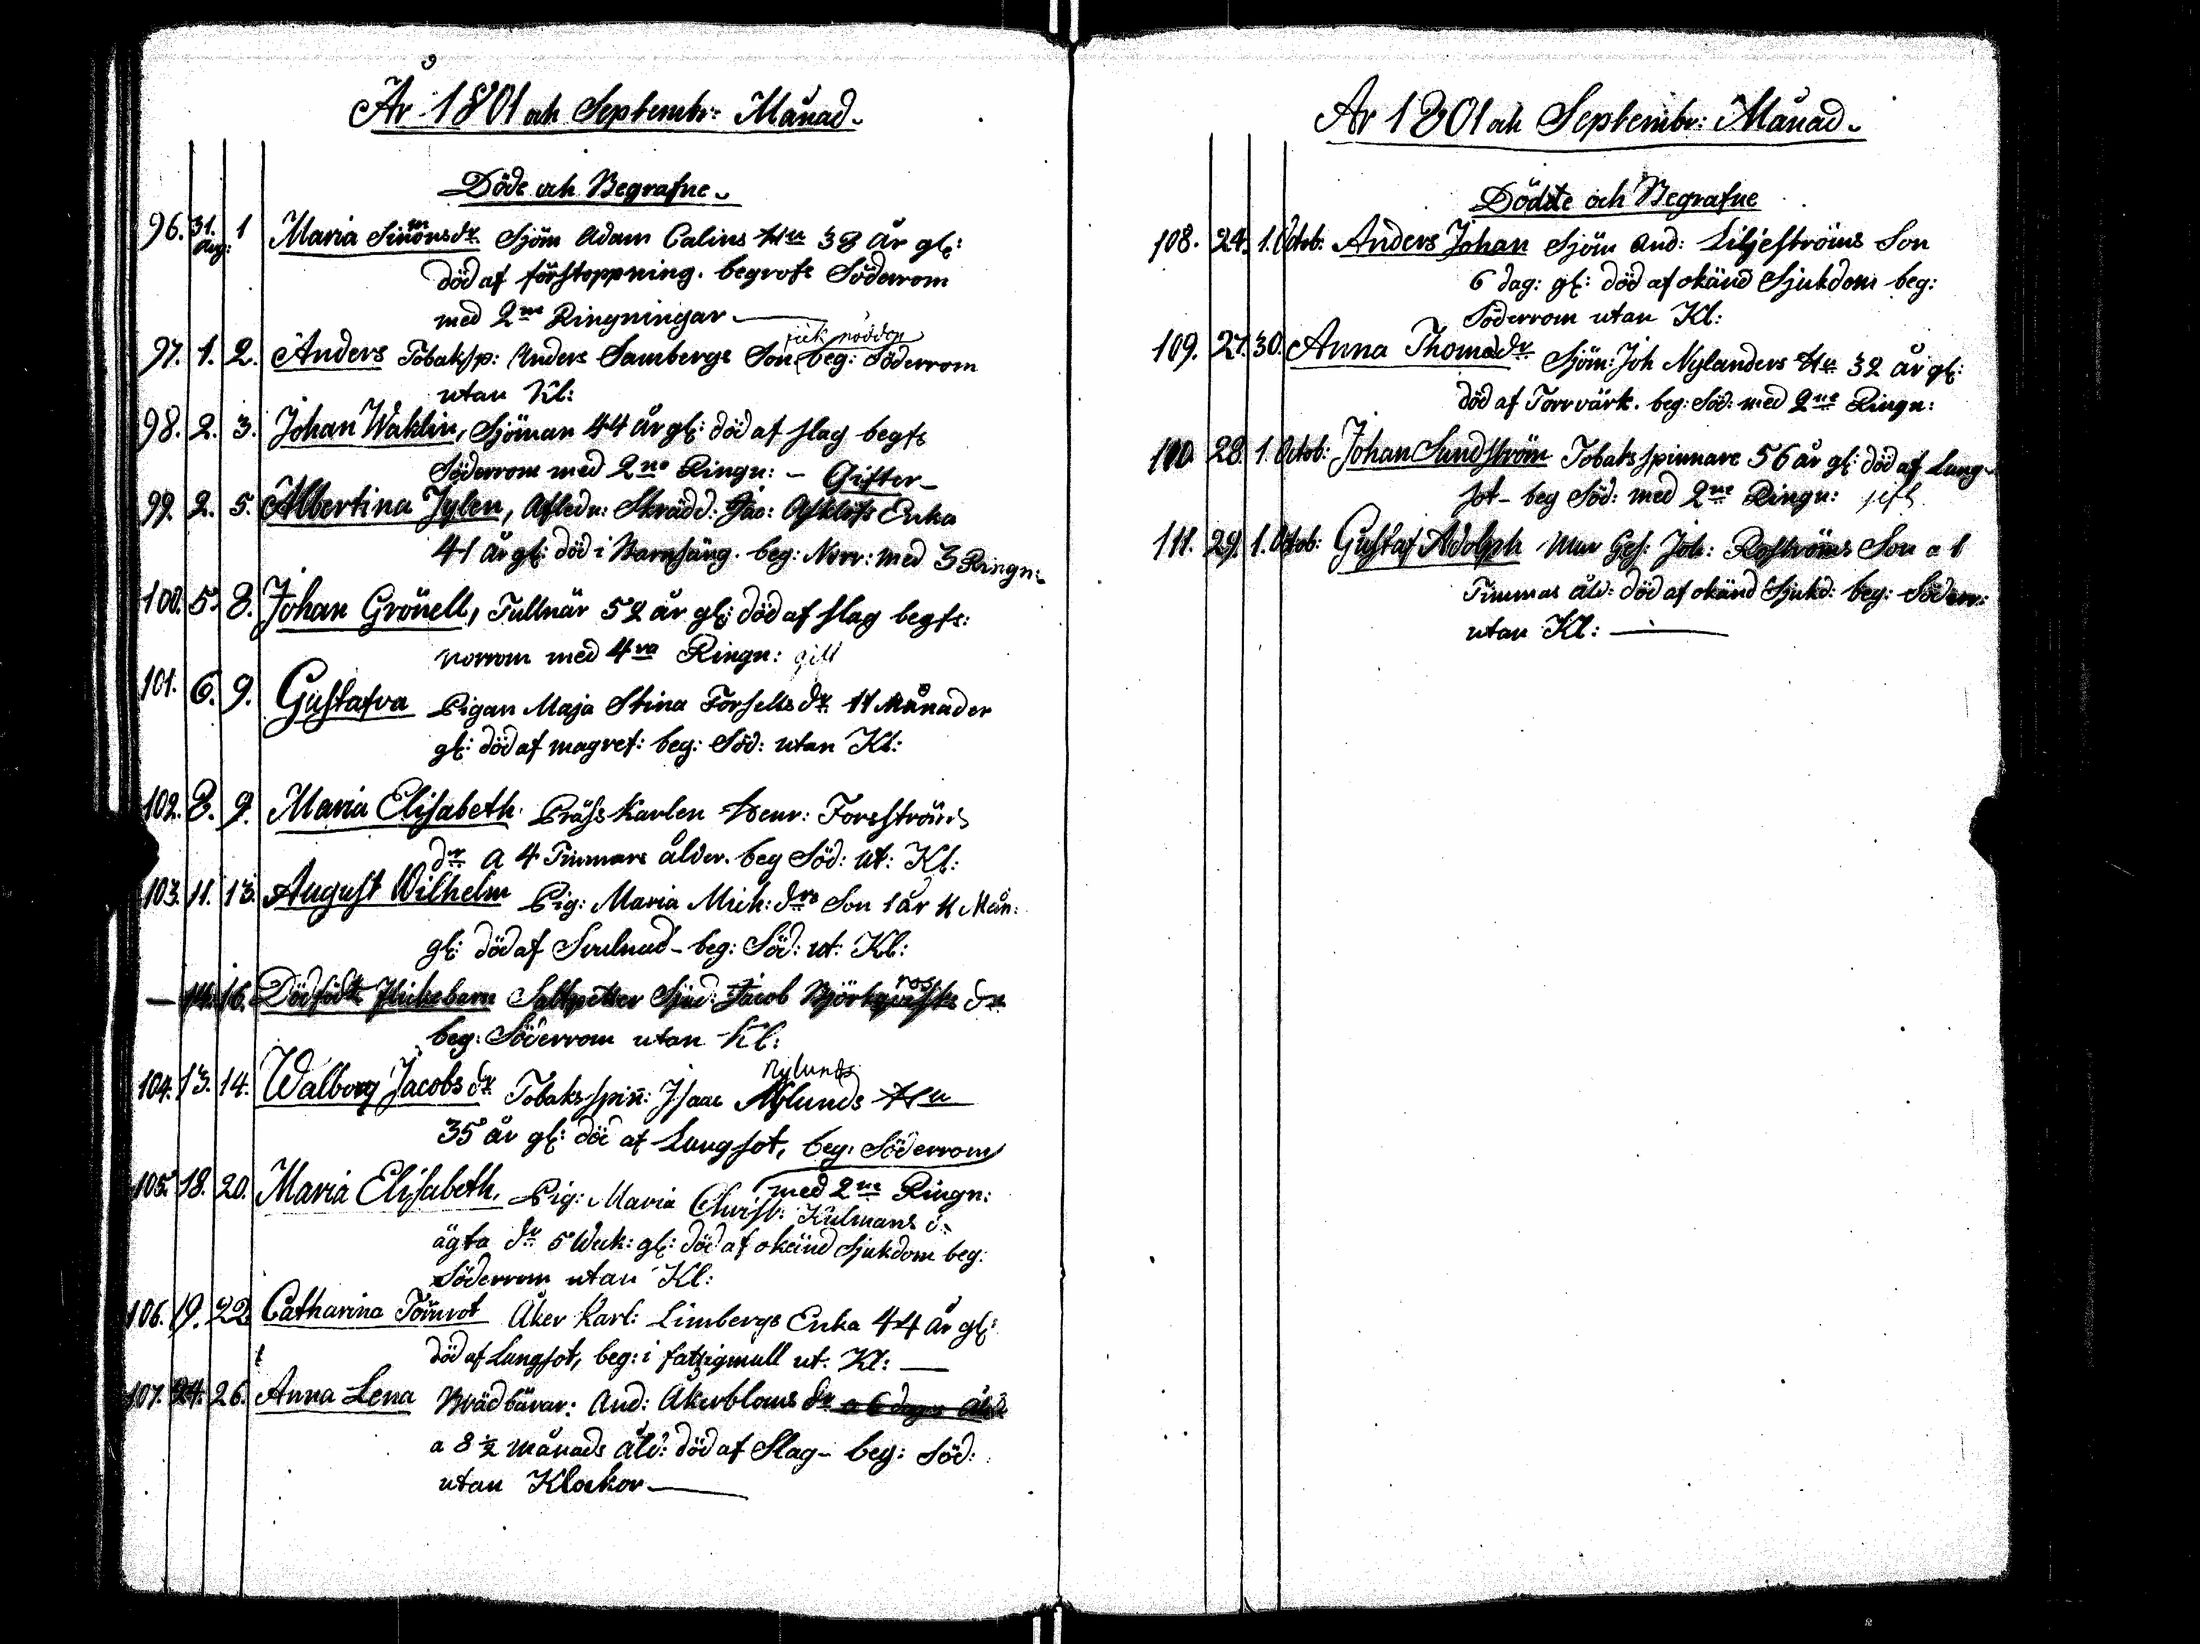 År 1801 och Septembr: Månad.
Döde och Begrafne.
96. 31. Aug: 1 Maria Simonsdr. Sjöm Adam Calins Hu 38 år gl:
död af förstoppning. begrofs Söderrom
med 2ne Ringningar
97. 1. 2. Anders Tobakssp: Anders Sambergs Son beg: Söderrom
utan Kl:
98. 2. 3. Johan Waklin, Sjöman 44 år gl: död af slag begfs
Söderrom med 2ne Ringn: – Gifter –
99. 2. 5. Albertina Jylen, Afledn: Skrädd: Jac: Enka
41 år gl: död i Barnsäng. beg: Norr: med 3 Ringn:
100. 5. 8. Johan Grönell, Tullnär 52 år gl: död af slag begfs:
norrom med 4ra Ringn: gift
101. 6. 9. Gustafva Pigan Maja Stina Forsells dr. 11 Månader
gl: död af magref: beg: Söd: utan Kl:
102. 8. 9. Maria Elisabeth. Präss karlen Henr: Forsströms
dr a 4 Timmars ålder. beg Söd: ut: Kl:
103. 11. 13. August Wilhelm Pig: Maria Mich: drs Son 1 år 11 Mån:
gl: död af Svulnad – beg: Söd: ut: Kl:
— 14. 16. Dödfödt flickebarn Saltpetter Sjud: Jacob Björkqvists dr
ros
beg: Söderrom utan Kl:
Nylunds
104. 13. 14. Walborg Jacobs dr Tobaks spin: Isaac Nylunds Hu
35 år gl: död af Lungsot, beg: Söderrom
med 2ne Ringn:
105. 18. 20. Maria Elisabeth. Pig: Maria Christ: Kulmans o:
ägta dr 5 Wek: gl: död af okänd sjukdom beg:
Söderrom utan Kl:
106. 19. 22. Catharina Törnrot Åker Karl: Limbergs Enka 44 år gl:
död af Lungsot, beg: i fattigmull ut: Kl: —
107. 24. 26. Anna Lena Brädbärar: And: Åkerbloms dr a 6 dagars åld:
a 8 ½ månads åld: död af Slag – beg: Söd:
utan Klockor
Ar 1801 och Septembr: Månad.
Dödde och Begrafne
108. 24. 1. Octob: Anders Johan Sjöm And: Liljeströms Son
6 dag: gl: död af okänd Sjukdom beg:
Söderrom utan Kl:
109. 27. 30. Anna Thomædr Sjöm: Joh Nylanders Hu 32 år gl:
död af Torrvärk. beg: Söd: med 2ne Ringn:
100. 28. 1. Octob: Johan Sundström Tobaks spinnare 56 år gl: död af Lung-
sot – beg Söd: med 2ne Ringn: gift
111. 29. 1. Octob: Gustaf Adolph Mur Ges: Joh: Rosströms Son a 1
Timmas åld: död af okänd Sjukd: beg: Söderr:
utan Kl: —